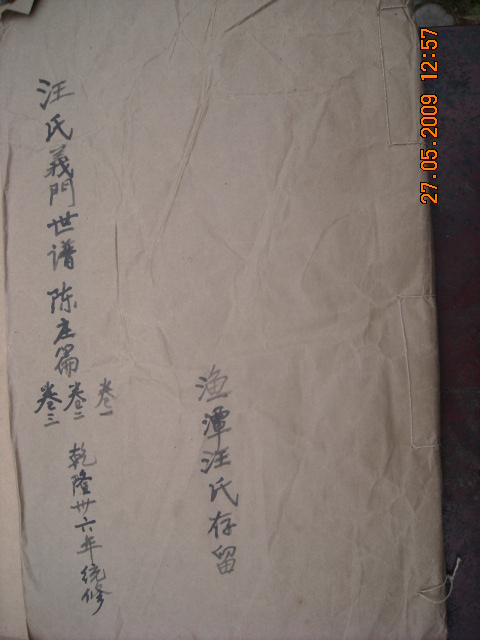 汪氏義門世谱 陈庄篇
卷一
卷二
卷三
乾隆卅六年统修
渔潭汪氏存留
27.05.2009 12:57